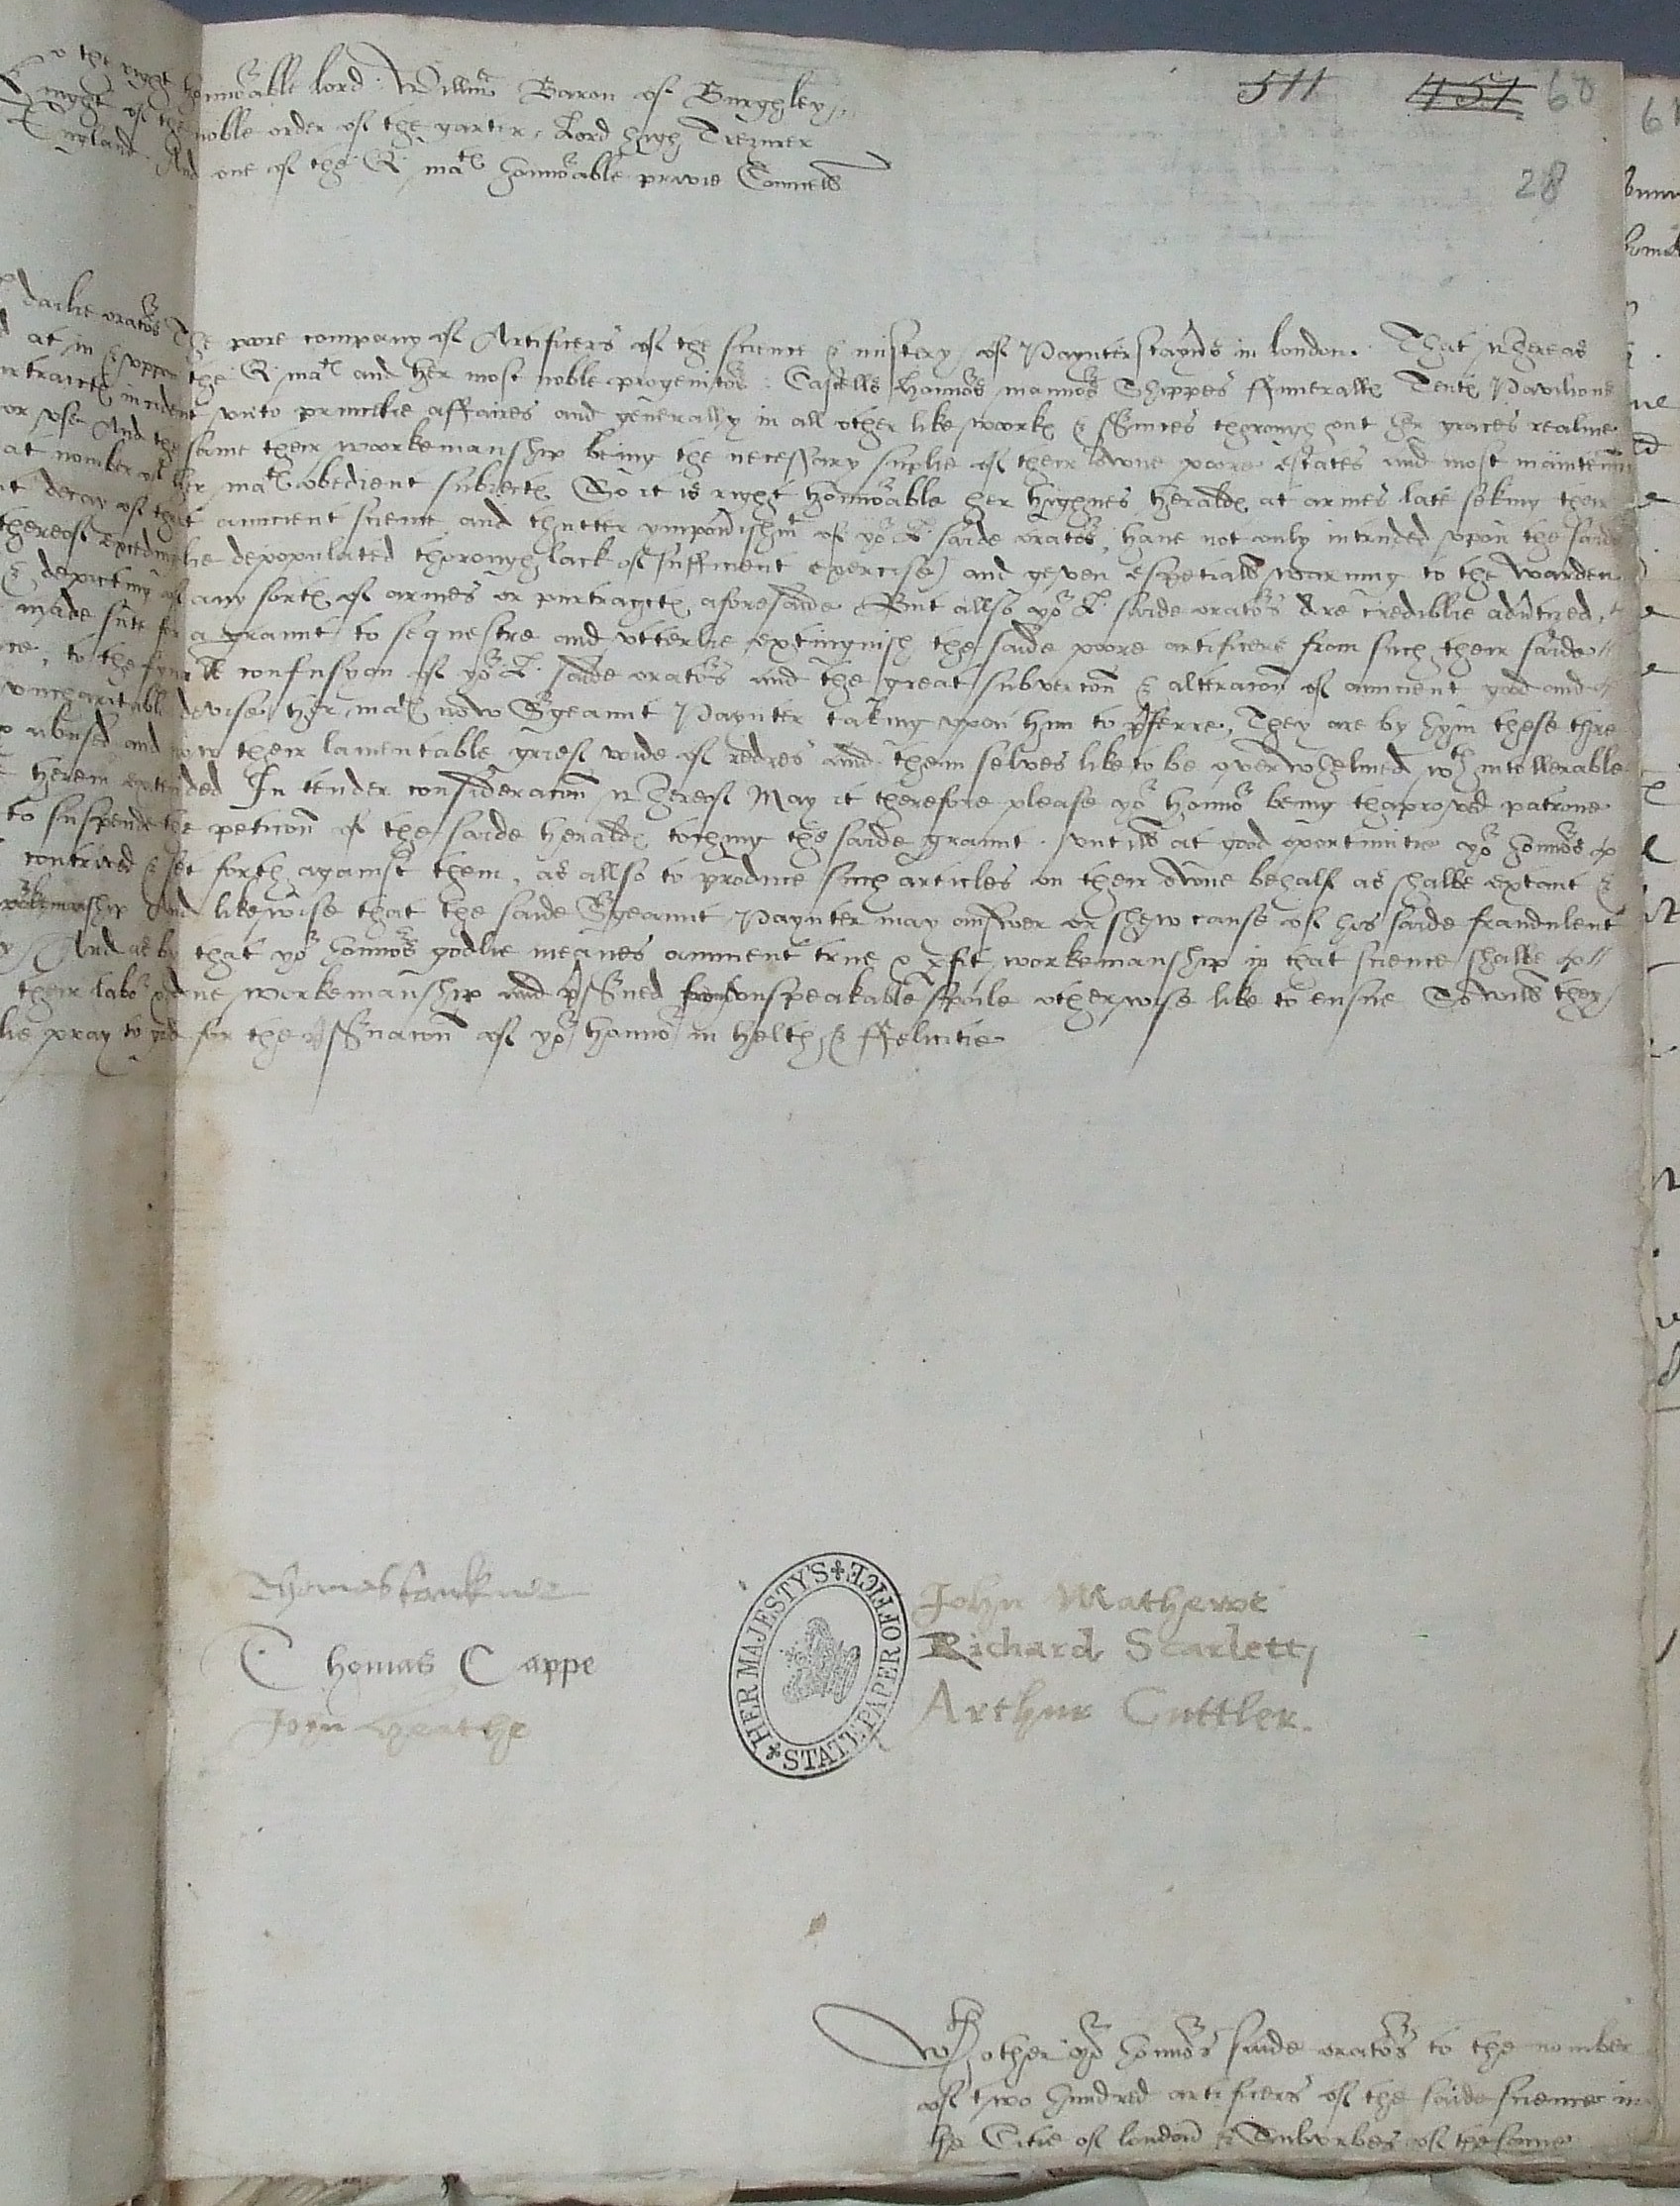 511 451 60
28
the right honnorable lord Willm Baron of Burghley
knyght of the noble order of the garter, Lord high Tresurer
England And one of the Q. matis honnorable privie Councell
dailie orators The pore company of Artificers of the science & mistery of Paynterstayners in london. That whereas
at in & uppon the Q. matis and her most noble progenitors Castells honnors mannors Shippes ffuneralls Tents Pavilions
incident unto princelie affaires and generally in all other like works & services thorough out her graces realme
or use And the same their woorkemanship being the necessary suplie of their owne poore estates and most
at nomber of her matis obedient subiects So it is right honnorable her highnes heralds at armes late seking their
decay of that auncient science and thutter ympovrishmt of yor L. saide orators, have not only intruded upon the saide
thereof depopulated thorough lack of sufficient exercise) and geven espetiall warning to the wardens
& depicting of any sorts of armes or purtraicts aforesaide But allso yor L. saide orators Are crediblie advertized,
made sute for a graunt to sequestre and utterlie extinguish the saide poore artificers from such their saide
to the fynall confusyon of yor L. saide orators and the great subvercon & alteracon of auncient good and
uncharitable devise her matis now Sergeaunt Paynter taking upon him to preferre, They are by hym these thre
abused and now their lamentable grief wide of redres and them selves like to be overwhelmed wth intollerable
herein extended In tender consideracon whereof May it therefore please yor honnor being thaproved patrone
to suspende the peticon of the saide heralds toching the saide graunt untill at good oportunitie yor honnors
contrived & set forth against them, as allso to produce such articles on their owne behalf as shalbe extant &
woorkmanship And likewise that the saide Sergeaunt Paynter may answer or shew cause of his saide fraudulent
And as by that yor honnors godlie meanes auncient true & perfit workemanship in that science shalbe
their labor done workemanship and preserved from unspeakable spoile otherwise like to ensue So will they
pray to god for the preservacon of yor honnor in helth & ffelicitie
Thomas
Thomas Cappe
John heathe
John Mathewe
Richard Scarlett
Arthur Cuttler.
HER MAJESTY'S STATE PAPER OFFICE
Wth other yor honnors saide orators to the nomber
of two hundred artificers of the saide science in
the Citie of london & Suburbes of the same